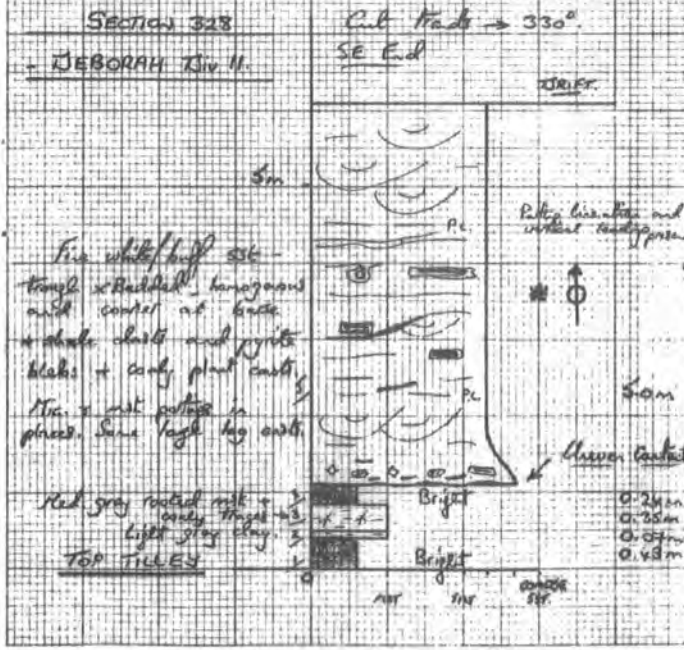 SECTION 328
- DEBORAH Div 11.
Cut trends → 330°.
SE End
DRIFT.
5m
P.C.
Parting lineation and
vertical
Fine white/buff sst -
trough xBedded homogenous
and coarser at base
+ shale clasts and pyrite
blebs + coaly plant casts.
Mic. + mst partings in
places. Some large log casts.
5.0m
P.C.
Uneven Contact
Med. grey rooted mst +
coaly traces
Light grey clay.
TOP TILLEY
Bright
Bright
0.24m
0.35m
0.07m
0.43m
0
MST
FINE
COARSE
SST.